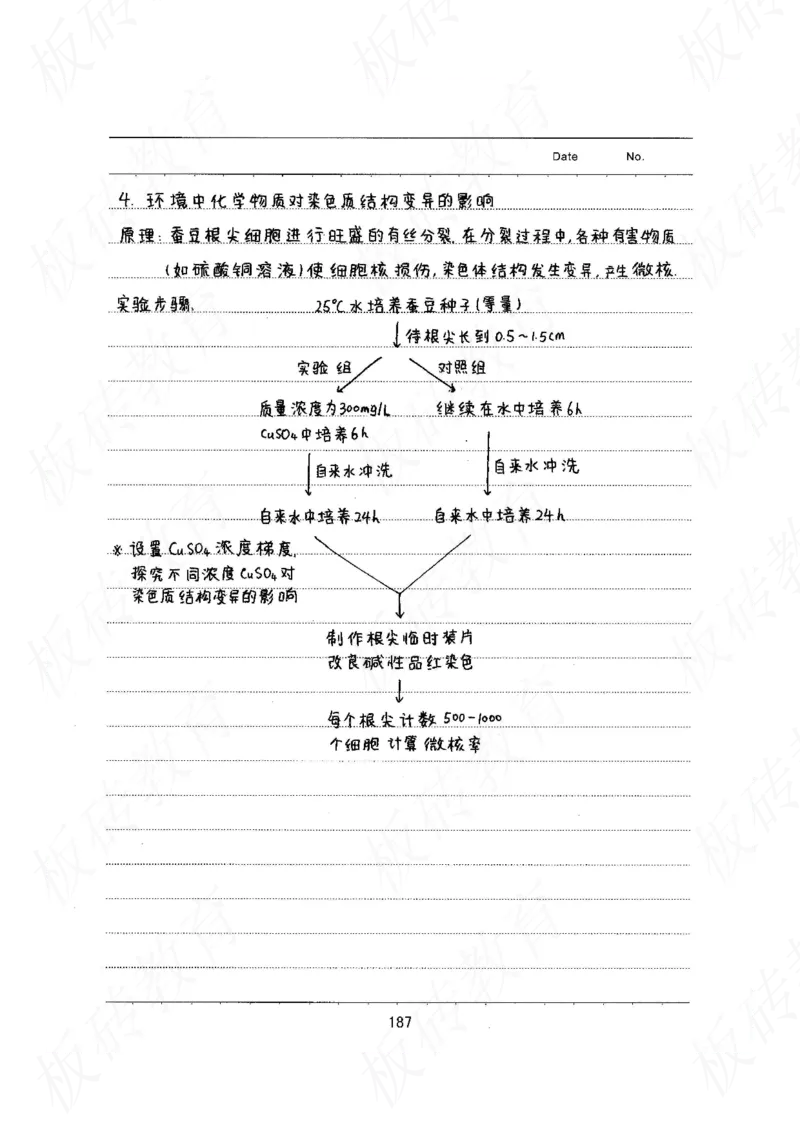 Date No.
4. 环境中化学物质对染色质结构变异的影响
原理:蚕豆根尖细胞进行旺盛的有丝分裂.在分裂过程中,各种有害物质
(如硫酸铜溶液)使细胞核损伤,染色体结构发生变异,产生微核.
实验步骤. 25℃水培养蚕豆种子(等量)
待根尖长到0.5~1.5cm
实验组 对照组
质量浓度为300mg/L 继续在水中培养6h
CuSO4中培养6h
自来水冲洗 自来水冲洗
自来水中培养24h 自来水中培养24h
※设置CuSO4浓度梯度,
探究不同浓度CuSO4对
染色质结构变异的影响
制作根尖临时装片
改良碱性品红染色
每个根尖计数500-1000
个细胞计算微核率
187
板砖教育